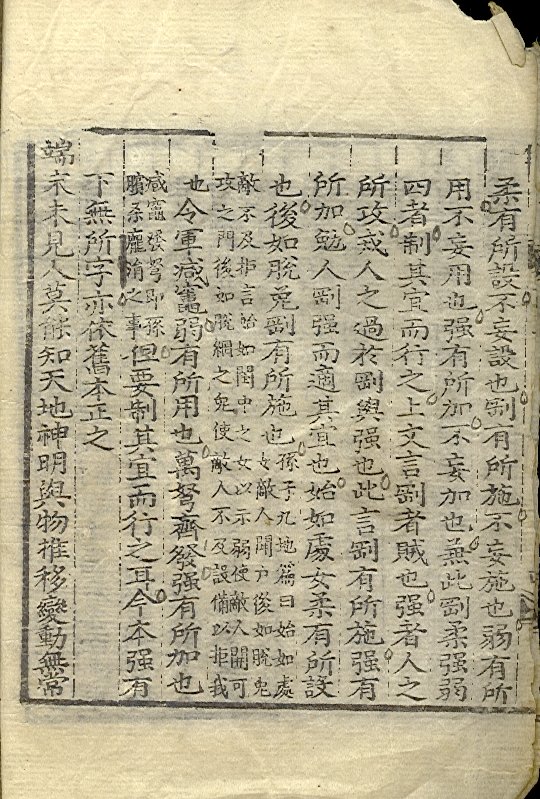 柔有所設不妄設也剛有所施不妄施也弱有所
用不妄用也强有所加不妄加也兼此剛柔强弱
四者制其宜而行之上文言剛者賊也强者人之
所攻戒人之過於剛與强也此言剛有所施强有
所加勉人剛强而適其宜也始如處女柔有所設
也後如脫兎剛有所施也孫子九地篇曰始如處
女敵人開戶後如脫兎
敵不及拒言始如閨中之女以示弱使敵人開可
攻之門後如脫網之兎使敵人不及設備以拒我
也令軍減竈弱有所用也萬弩齊發强有所加也
減竈發弩即孫
臏殺龐涓之事但要制其宜而行之耳今本强有
下無所字亦依舊本正之
端末未見人莫能知天地神明與物推移變動無常